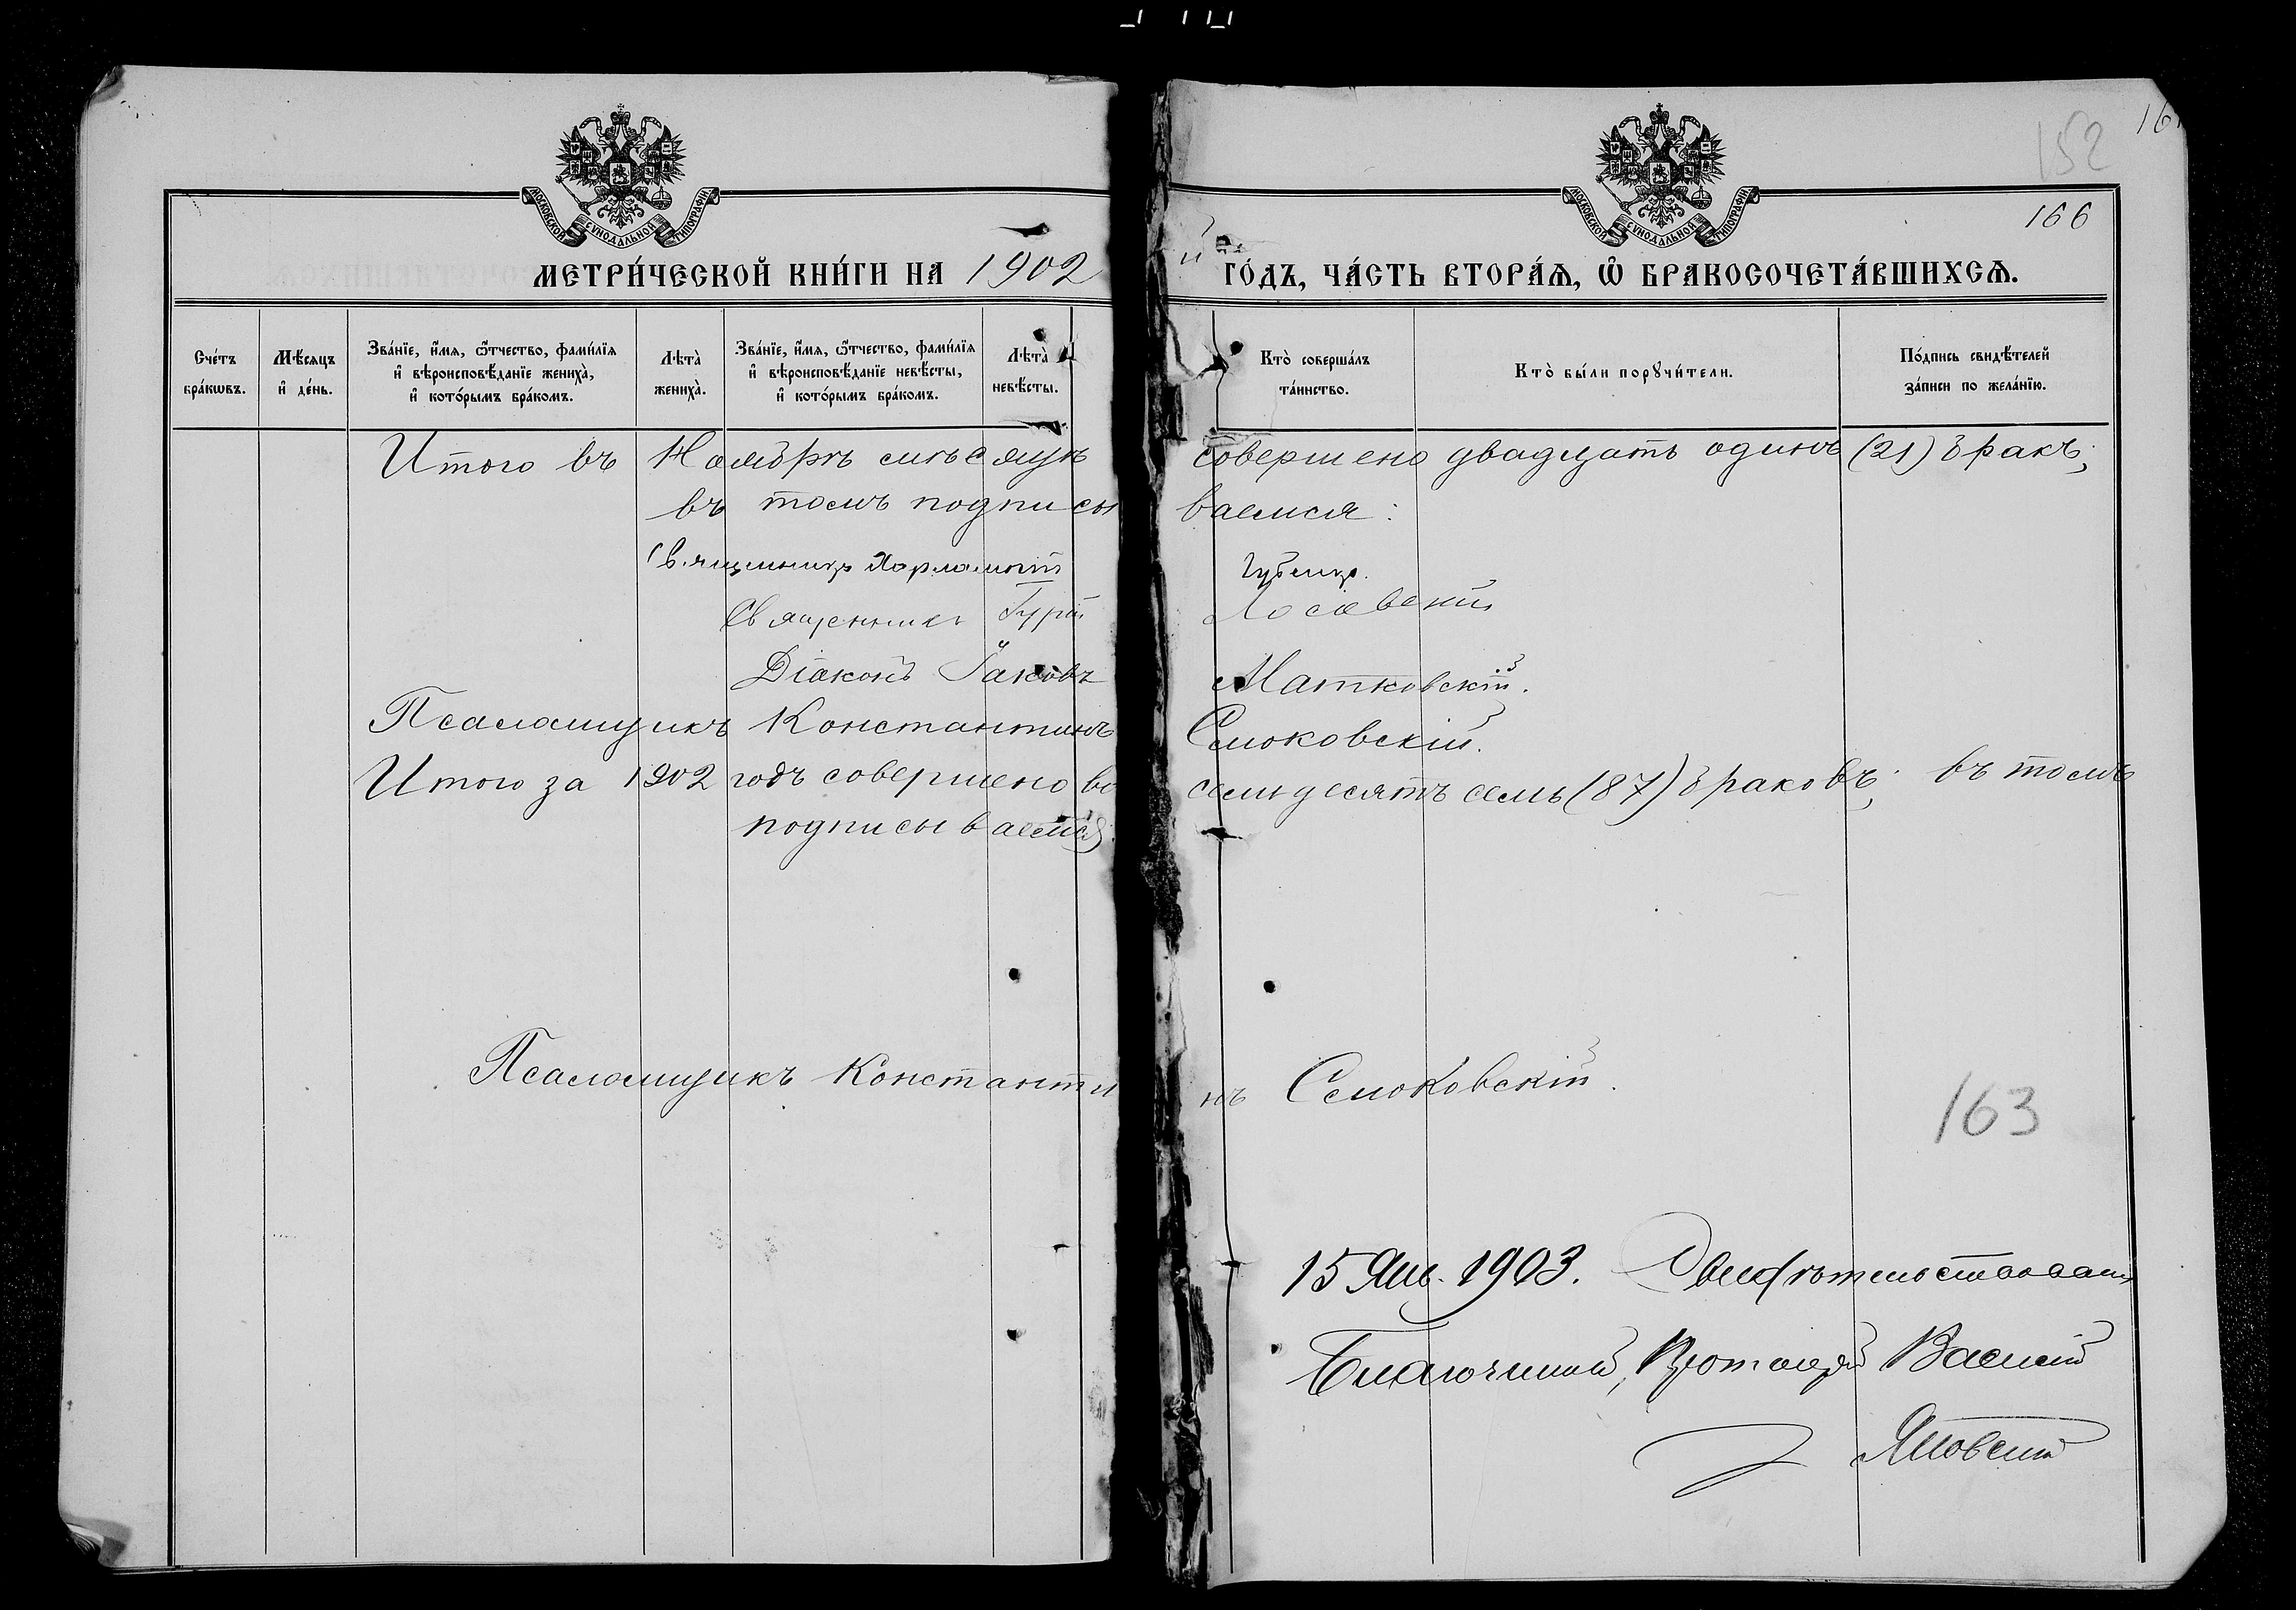 152
161
166
МОСКОВСКОЙ СѴНОДАЛЬНОЙ ТИПОГРАФІИ
МОСКОВСКОЙ СѴНОДАЛЬНОЙ ТИПОГРАФІИ
МЕТРИ́ЧЕСКОЙ КНИ́ГИ НА 1902й ГО́ДЪ, ЧА́СТЬ ВТОРА́Я, Ѡ БРАКОСОЧЕТА́ВШИХСЯ.
Сче́тъ бра́кѡвъ.
Мѣ́сяцъ и҆ де́нь.
Зва́нїе, и҆́мя, ѻ҆́тчество, фами́лїя и҆ вѣроисповѣ́данїе жениха̀, и҆ кото́рымъ бра́комъ.
Лѣта̀ жениха̀.
Зва́нїе, и҆́мя, ѻ҆́тчество, фами́лїя и҆ вѣроисповѣ́данїе невѣ́сты, и҆ кото́рымъ бра́комъ.
Лѣта̀ невѣ́сты.
Кто̀ соверша́лъ та́инство.
Кто̀ бы́ли порꙋчи́тели.
По́дпись свидѣ́телей за́писи по жела́нїю.
Итого въ Ноябрѣ мѣсяцѣ совершено двадцать одинъ (21) бракъ;
въ томъ подписываемся:
Священникъ Харлампій Губенко.
Священникъ Гурій Лосіевскій
Діаконъ Іаковъ Матковскій.
Псаломщикъ Константинъ Смоковскій.
Итого за 1902 годъ совершено восемьдесятъ семь (87) браковъ; въ томъ
подписываемся.
Псаломщикъ Константинъ Смоковскій.
163
15 Янв. 1903. Свидѣтельствовалъ
Благочинный, Протоіерей Василій